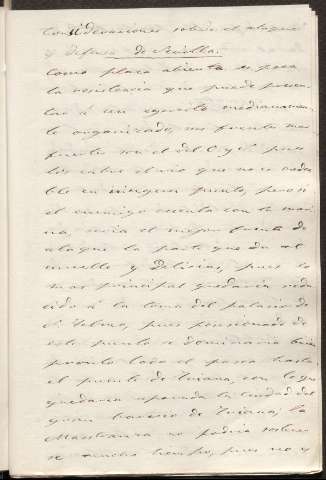 Consideraciones sobre el ataque
y defensa de Sevilla.
Como plaza abierta es poca
la resistencia que puede presen
tar á un egercito medianamen
te organizado, sus frentes mas
fuertes son el del O. y pues
los cubre el rio que no es vadea
ble en ningun punto, pero si
el enemigo cuenta con la mari
na, seria el mejor frente de
ataque la parte que da al
muelle y Delicias, pues lo
mas principal quedaria redu
cido á la toma del palacio de
Sn. Telmo, pues posesionado de
este punto se dominaria bien
pronto todo el paseo hasta
el puente de Triana, con lo que
quedaria aislada la ciudad del
gran barrio de Triana, la
Maestranza no podria sostener
se mucho tiempo, pues no y